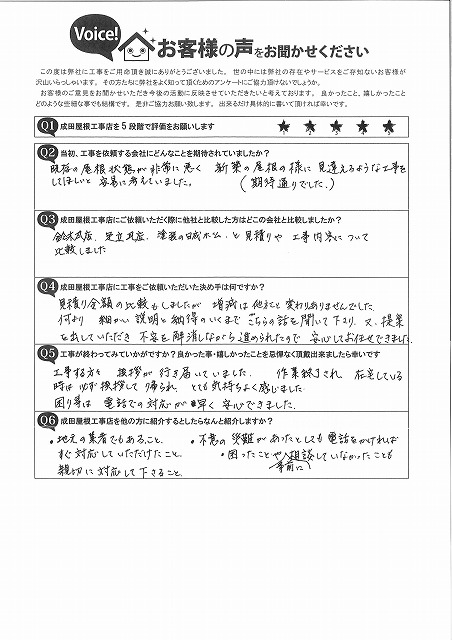 Voice!
お客様の声をお聞かせください
この度は弊社に工事をご用命頂き誠にありがとうございました。 世の中には弊社の存在やサービスをご存知ないお客様が
沢山いらっしゃいます。 その方たちに弊社をよく知って頂くためのアンケートにご協力頂けないでしょうか。
お客様のご意見をお聞かせいただき今後の活動に反映させていただきたいと考えております。 良かったこと、嬉しかったこと
どのような些細な事でも結構です。 是非ご協力お願い致します。 出来るだけ具体的に書いて頂ければ幸いです。
Q1 成田屋根工事店を5段階で評価をお願いします ★ ★ ★ ★ ★
1 2 3 4 5
Q2 当初、工事を依頼する会社にどんなことを期待されていましたか?
既存の屋根状態が非常に悪く 新築の屋根の様に見違えるような工事を
してほしいと容易に考えていました。 (期待通りでした。)
Q3 成田屋根工事店にご依頼いただく際に他社と比較した方はどこの会社と比較しましたか?
鈴木瓦店、足立瓦店、塗装の と見積りや工事内容について
比較しました
Q4 成田屋根工事店に工事をご依頼いただいた決め手は何ですか?
見積り金額の比較もしましたが 増減は他社と変わりありませんでした。
何より 細かい説明と納得のいくまでこちらの話を聞いて下さり、又、提案
を出していただき 不安を解消しながら進められたので 安心してお任せできました。
Q5 工事が終わってみていかがですか?良かった事・嬉しかったことを忌憚なく頂戴出来ましたら幸いです
工事する方々 挨拶が行き届いていました。 作業終了され 在宅している
時は必ず挨拶して帰られ とても気持ちよく感じました。
困り事は 電話での対応が早く 安心できました。
Q6 成田屋根工事店を他の方に紹介するとしたらなんと紹介しますか?
・地元の業者でもあること。 ・不意の災難があったとしても電話をかければ
すぐ対応していただけたこと。 ・困ったことや相談していなかったことも
事前に
親切に対応して下さること。